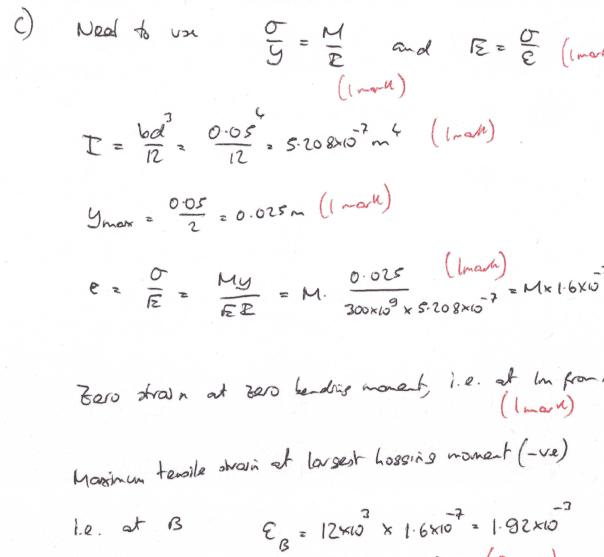 c) Need to use σ/y = M/I and E = σ/ε (1 mark
(1 mark)
I = bd³/12 = 0.05⁴/12 = 5.208x10⁻⁷ m⁴ (1 mark)
ymax = 0.05/2 = 0.025m (1 mark)
e = σ/E = My/EI = M. 0.025/300x10⁹ x 5.208x10⁻⁷ = M x 1.6x10⁻ (1 mark)
Zero strain at zero bending moment, i.e. at 1m from
(1 mark)
Maximum tensile strain at largest hogging moment (-ve)
i.e. at B εB = 12x10³ x 1.6x10⁻⁷ = 1.92x10⁻³